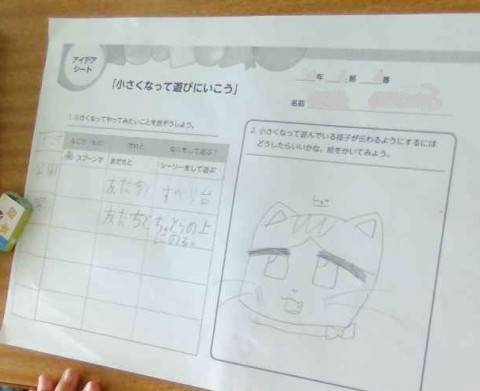 アイデア
シート
「小さくなって遊びにいこう」
年 組 番
名前
1. 小さくなってやってみたいことを話そうしよう。
なにで(もの) だれと なにをして遊ぶ?
スプーンで 友だちと シーソーをして遊ぶ
公園 友だちと すべり台
家 友だちと ちゃとらの上
にのる。
2. 小さくなって遊んでいる様子が伝わるようにするには
どうしたらいいかな。絵をかいてみよう。